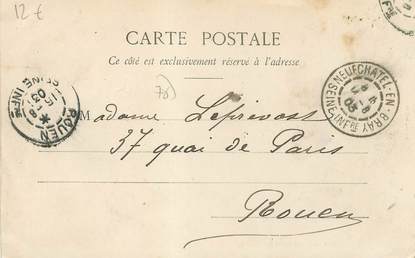 12 €
CARTE POSTALE
Ce côté est exclusivement réservé à l'adresse
78)
Madame Leprevost
37 quai de Paris
Rouen
NEUFCHATEL-EN-BRAY
SEINE-INFRE
ROUEN
SEINE INFRE